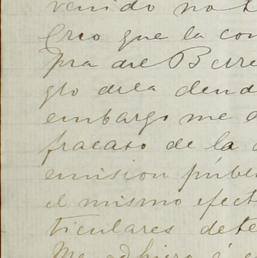 venido no t
Creo que la con
pra de Berre
glo de la deud
embargo me d
fracaso de la c
emision públi
el mismo efect
ticulares dete
Me adhiero á e